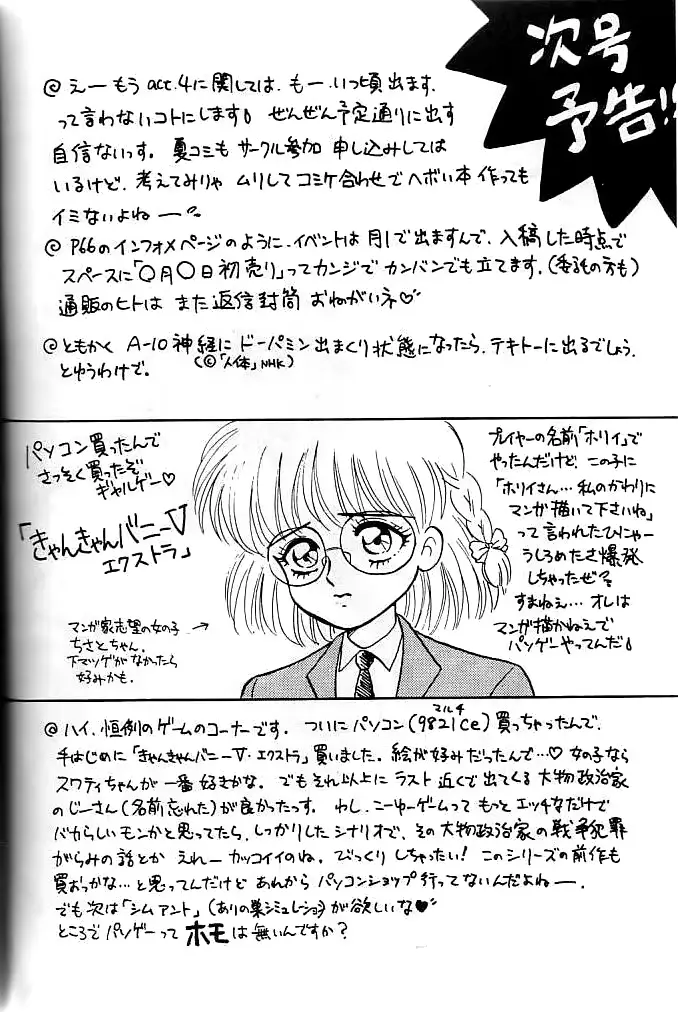 次号
予告!!
@ えー もう act.4に関しては、もー、いつ頃出ます、
って言わないコトにします。ぜんぜん予定通りに出す
自信ないっす。夏コミも サークル参加 申し込みしては
いるけど、考えてみりゃ ムリしてコミケ合わせで ヘボい本 作っても
イミないよねー。
@ P66のインフォメページのように、イベントは 月1で出ますんで、入稿した時点で
スペースに「○月○日初売り」ってカンジで カンバンでも立てます。(委託の方も)
通販のヒトは また返信封筒 おねがいネ♡
@ ともかく A-10神経に ドーパミン出まくり状態になったら、テキトーに出るでしょう。
(©「人体」NHK)
とゆうわけで。
パソコン買ったんで
さっそく買ったぞ
ギャルゲー♡
「きゃんきゃんバニーV
エクストラ」
マンガ家志望の女の子 →
ちさとちゃん。
下マツゲがなかったら
好みかも。
プレイヤーの名前「ホリイ」で
やったんだけど、この子に
「ホリイさん…私のかわりに
マンガ描いて下さいね」
って言われたひにゃー
うしろめたさ爆発
しちゃったぜ
すまねえ… オレは
マンガ描かねえで
パソゲーやってんだ
@ ハイ、恒例のゲームのコーナーです。ついにパソコン(9821Ce)買っちゃったんで、
マルチ
手はじめに「きゃんきゃんバニーV・エクストラ」買いました。絵が好みだったんで…♡ 女の子なら
スワティちゃんが 一番 好きかな。でもそれ以上に ラスト 近くで出てくる 大物政治家
のじーさん(名前忘れた)が良かったっす。わし、こーゆーゲームって もっと エッチなだけで
バカらしいモンかと思ってたら、しっかりしたシナリオで、その大物政治家の戦争犯罪
がらみの話とか えれーカッコイイのね。びっくり しちゃったい! このシリーズの前作も
買おっかな…と思ってんだけど あれから パソコンショップ行ってないんだよねー。
でも次は「シムアント」(ありの巣シミュレーション)が欲しいな♥
ところで パソゲーって ホモは無いんですか?